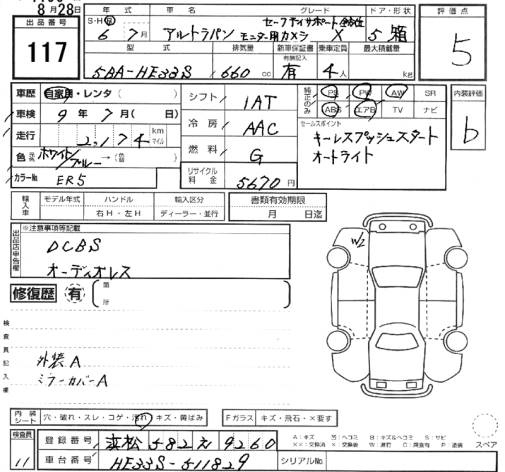 8月28日
出品番号
117
年式 車名 グレード ドア・形状
S・H・R 6年 7月 アルトラパン セーフティサポート全方位モニター用カメラ X 5 箱
型式 排気量 新車保証書 乗車定員 最大積載量
5BA-HE33S 660cc 有無記入 有 4人 kg
評価点
5
車歴 自家用・レンタ( )
車検 9年 7月( 日)
走行 2,174 km マイル
色 ホワイト/ブルー→(色替)
カラーNo ER5
シフト 1AT
冷房 AAC
燃料 G
リサイクル料金 5670円
純正のみ PS PW AW SR
ABS エアB TV ナビ
セールスポイント
キーレスプッシュスタート
オートライト
内装評価
b
輸入車 モデル年式 ハンドル 輸入区分
右H・左H ディーラー・並行
書類有効期限
月 日迄
出品店申告欄
※注意事項等記載
DCBS
オーディオレス
修復歴 有 箇所
W2
検査員記入欄
外装A
ミラーカバーA
内装シート 穴・破れ・スレ・コゲ・汚れ・キズ・黄ばみ
Fガラス キズ・飛石・×要す
検査員
11
登録番号 浜松 582 え 9260
車台番号 HE33S-511829
シリアルNo.
スペア